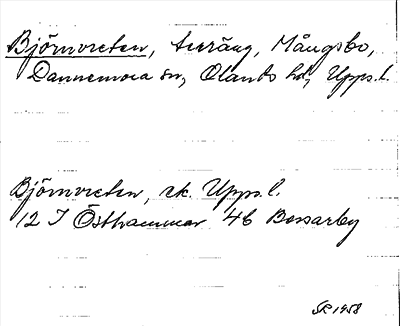 Björnvreten, teräng, Mångsbo,
Dannemora sn, Olands hd, Upps. l.
Björnvreten, ek. Upps. l.
12 I Östhammar 4b Bossarby
1958